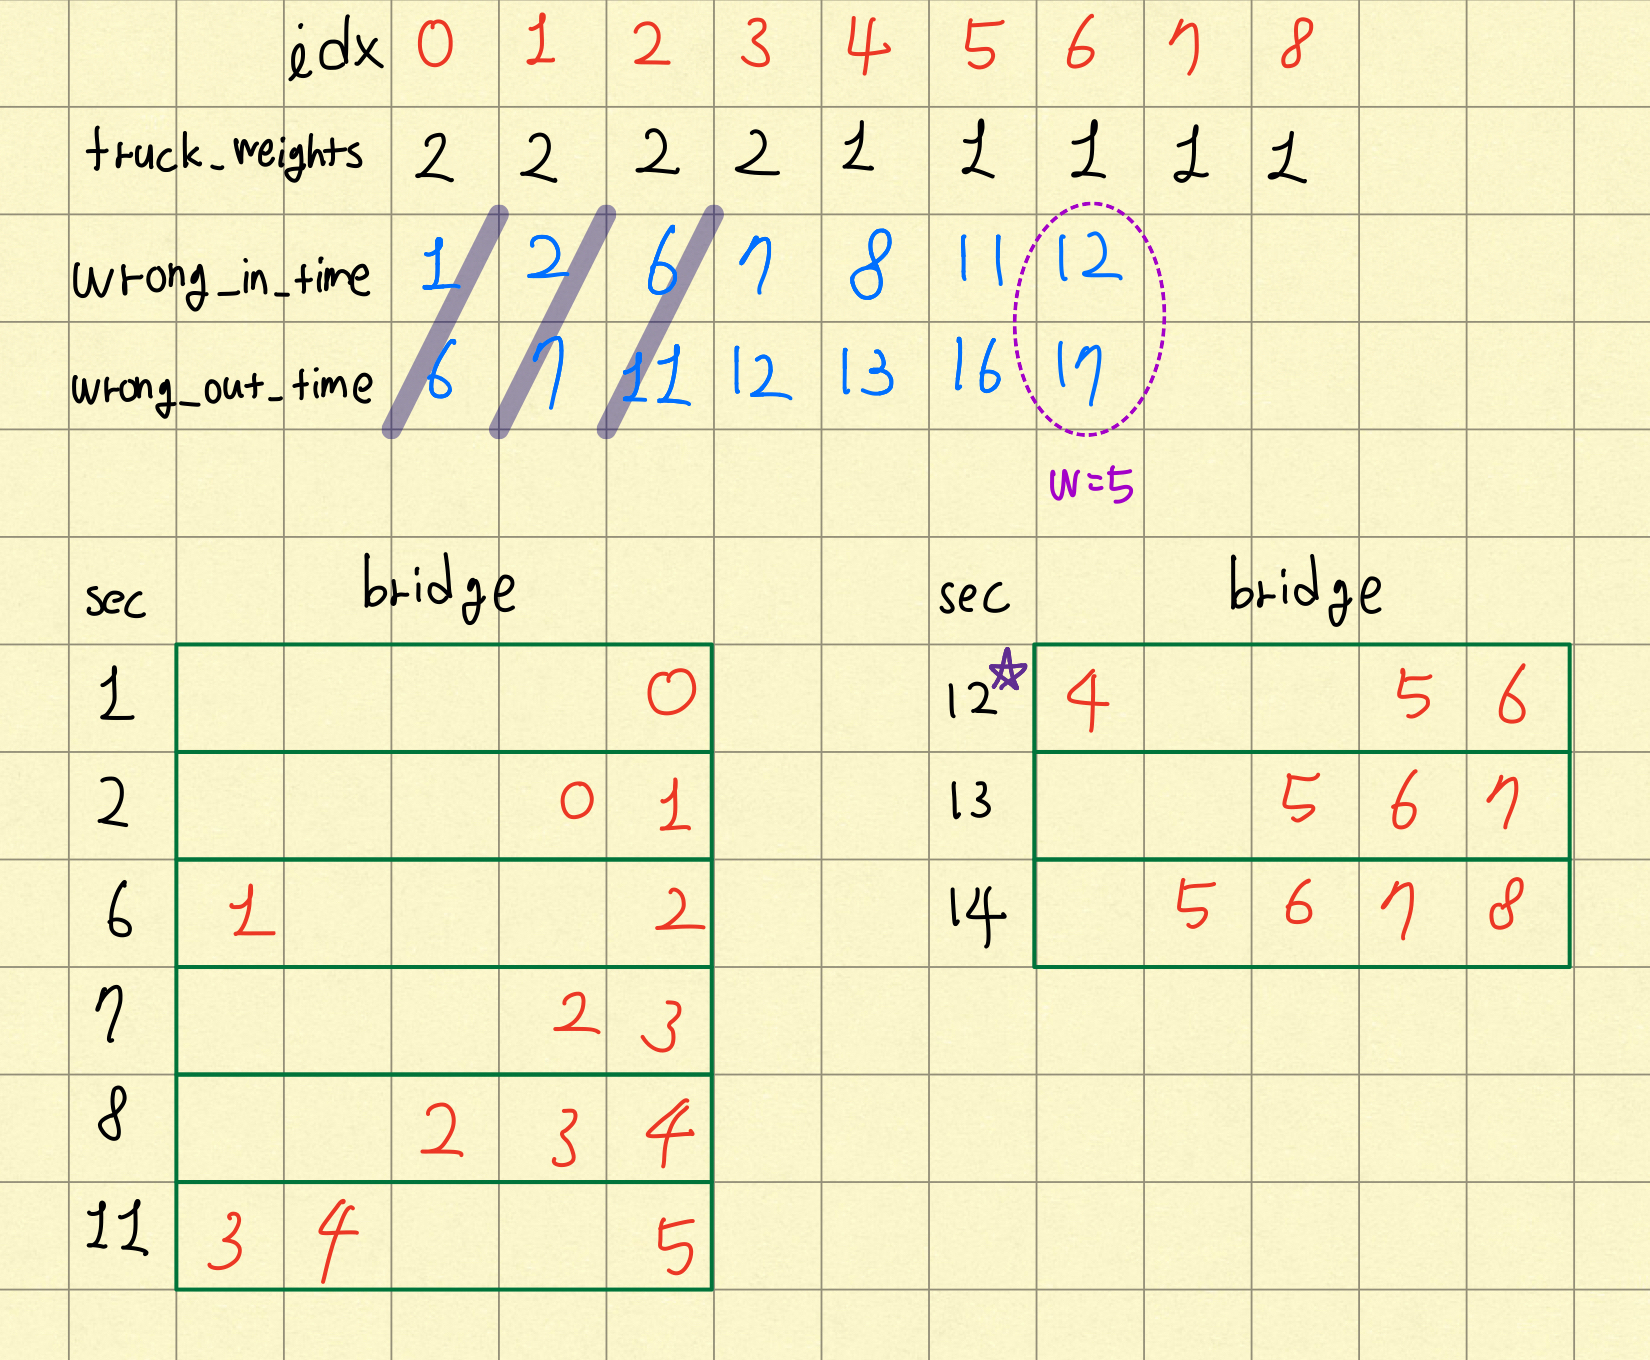 idx 0 1 2 3 4 5 6 7 8
truck_weights 2 2 2 2 1 1 1 1 1
wrong_in_time 1 2 6 7 8 11 12
wrong_out_time 6 7 11 12 13 16 17
w=5
sec bridge
1 0
2 0 1
6 1 2
7 2 3
8 2 3 4
11 3 4 5
sec bridge
12 4 5 6
13 5 6 7
14 5 6 7 8